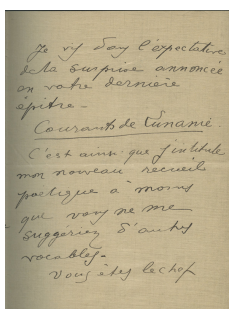 Je vis dans l'expectative
de la surprise annoncée
en votre dernière
épitre -
Courants de Lunanie.
C'est ainsi que j'intitule
mon nouveau recueil
poétique à moins
que vous ne me
suggériez d'autres
vocables -
Vous êtes le chef